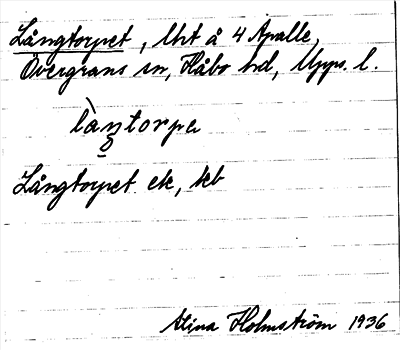 Långtorpet, lht å 4 Apalle,
Övergrans sn, Håbo hd, Upps. l.
Långtorpet ek, jeb
Stina Holmström 1936